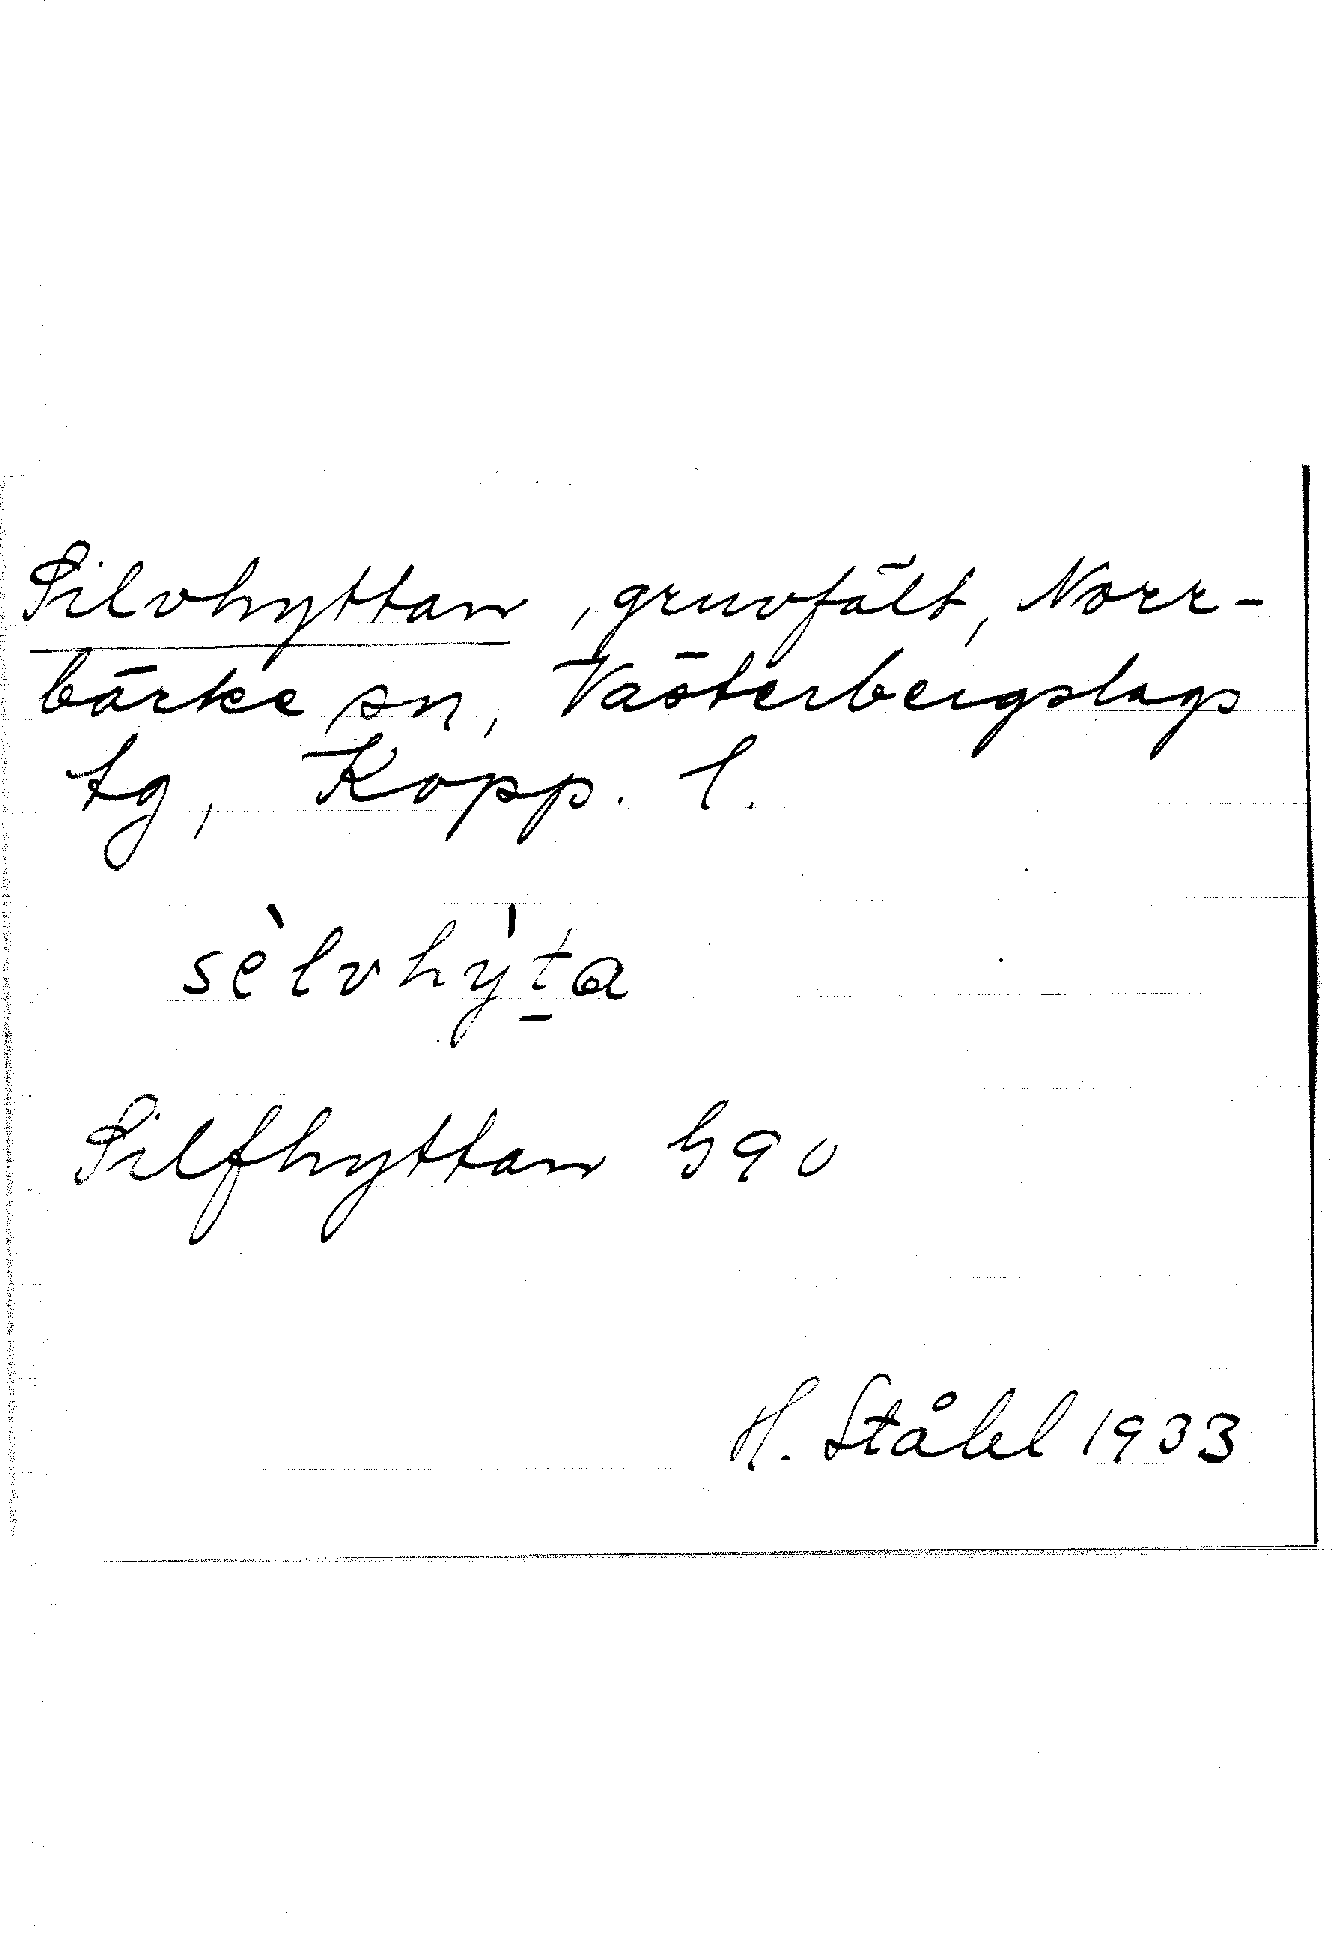 Silvhyttan, gruvfält, Norr-
bärke sn, Västerbergslags
tg, Kopp. l.
sèlvhy̍ṯa
Silfhyttan G90
H. Ståhl 1933